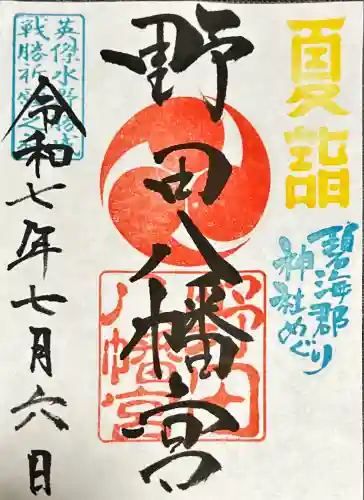 夏詣
碧海郡
神社めぐり
野田八幡宮
野田
八幡宮
英傑水野
戦勝祈
令和七年七月六日